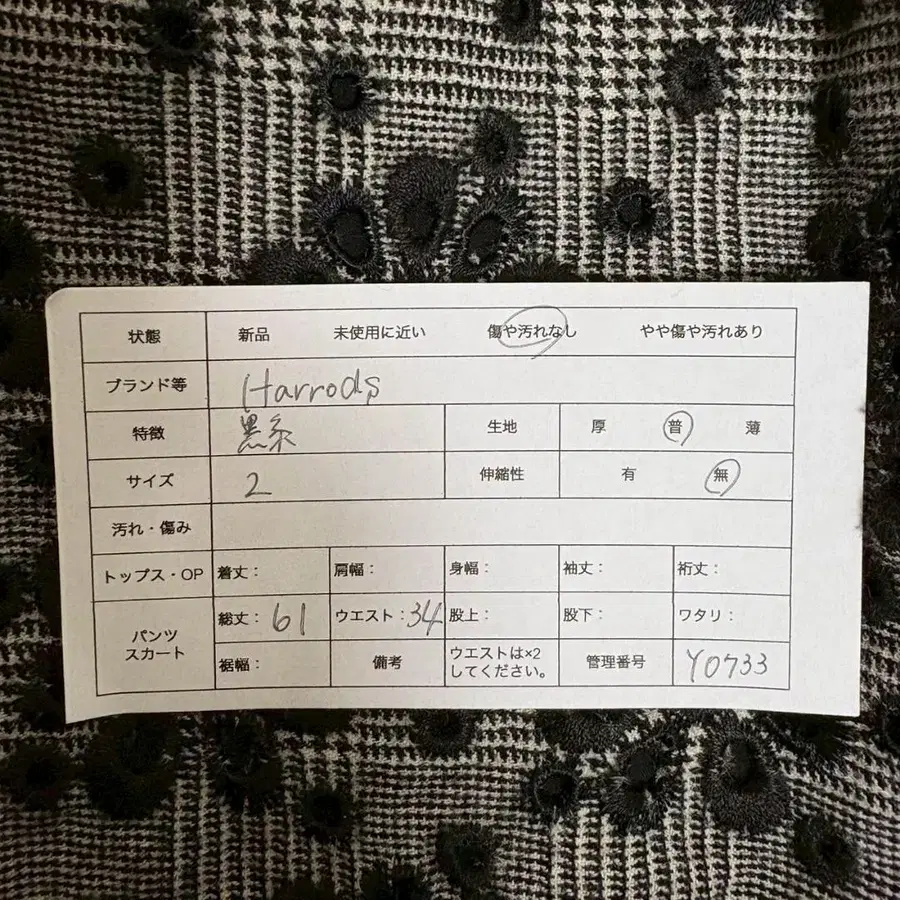 状態 新品 未使用に近い 傷や汚れなし やや傷や汚れあり
ブランド等 Harrods
特徴 黒系 生地 厚 普 薄
サイズ 2 伸縮性 有 無
汚れ・傷み
トップス・OP 着丈： 肩幅： 身幅： 袖丈： 裄丈：
パンツ
スカート
総丈：61 ウエスト：34 股上： 股下： ワタリ：
裾幅： 備考 ウエストは×2
してください。 管理番号 Y0733